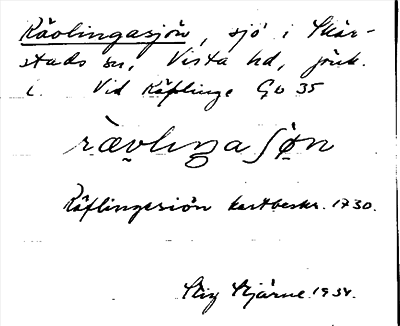 Rävlingasjön, sjö i Skär-
stads sn, Vista hd, jönk.
l. Vid Räflinge GD 35
rævliŋaʃøn
Räflingesiön kartbeskr. 1730.
Stig Stjärne 1934.